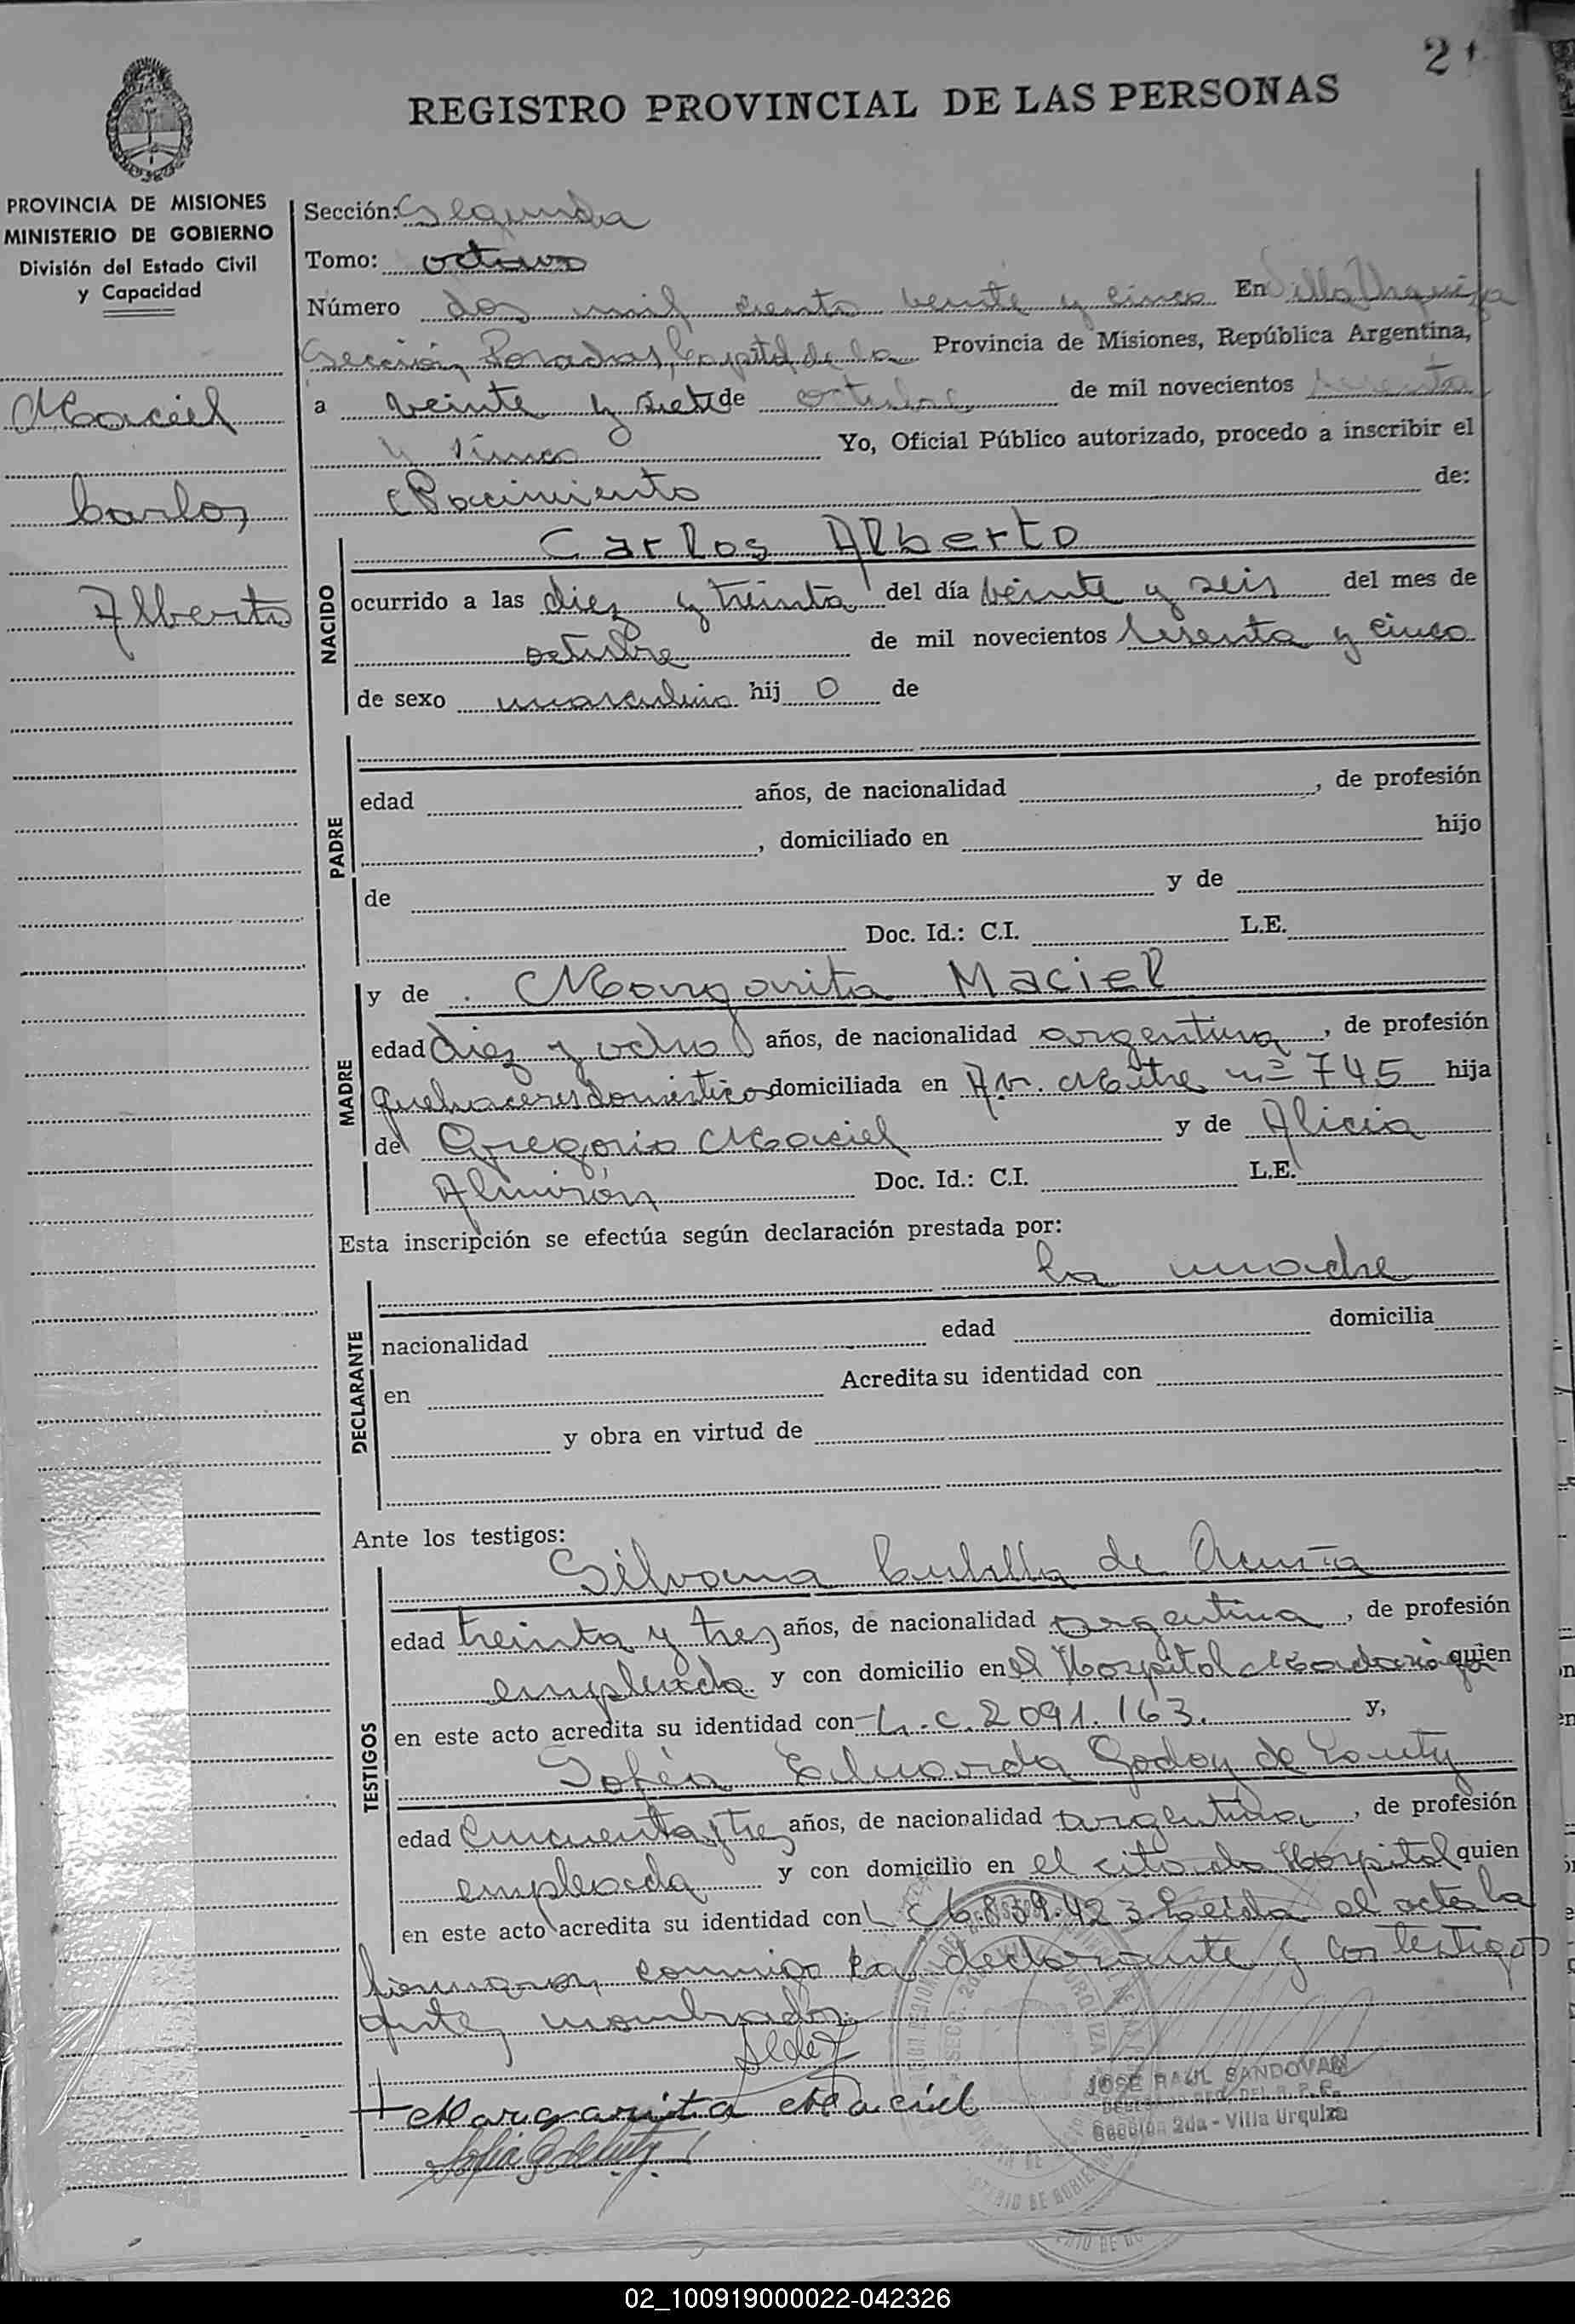 2
REGISTRO PROVINCIAL DE LAS PERSONAS
PROVINCIA DE MISIONES
MINISTERIO DE GOBIERNO
División del Estado Civil
y Capacidad
Maciel
Carlos
Alberto
Sección: Segunda
Tomo: octavo
Número dos mil ciento veinte y cinco En Villa Urquiza
Sección, Posadas, Capital de la Provincia de Misiones, República Argentina,
a veinte y siete de octubre de mil novecientos sesenta
y cinco Yo, Oficial Público autorizado, procedo a inscribir el
Nacimiento de:
NACIDO
Carlos Alberto
ocurrido a las diez y treinta del día veinte y seis del mes de
octubre de mil novecientos sesenta y cinco
de sexo masculino hij o de
PADRE
edad años, de nacionalidad , de profesión
, domiciliado en hijo
de y de
Doc. Id.: C.I. L.E.
MADRE
y de Margarita Maciel
edad diez y ocho años, de nacionalidad argentina, de profesión
quehaceres domésticos domiciliada en Av. Mitre nº 745 hija
de Gregorio Maciel y de Alicia
Almirón Doc. Id.: C.I. L.E.
Esta inscripción se efectúa según declaración prestada por:
la madre
DECLARANTE
nacionalidad edad domicilia
en Acredita su identidad con
y obra en virtud de
Ante los testigos:
TESTIGOS
Silvana de Acuña
edad treinta y tres años, de nacionalidad argentina, de profesión
empleada y con domicilio en el Hospital Madariaga quien
en este acto acredita su identidad con L.C. 2091.163. y,
Sofía Eduarda Godoy de
edad cincuenta y tres años, de nacionalidad argentina, de profesión
empleada y con domicilio en el citado Hospital quien
en este acto acredita su identidad con L C 6.839.423 Leída el acta la
firmaron conmigo la declarante y los testigos
antes nombrados.
Margarita Maciel
JOSE RAUL SANDOVAL
Sección 2da - Villa Urquiza
02_100919000022-042326